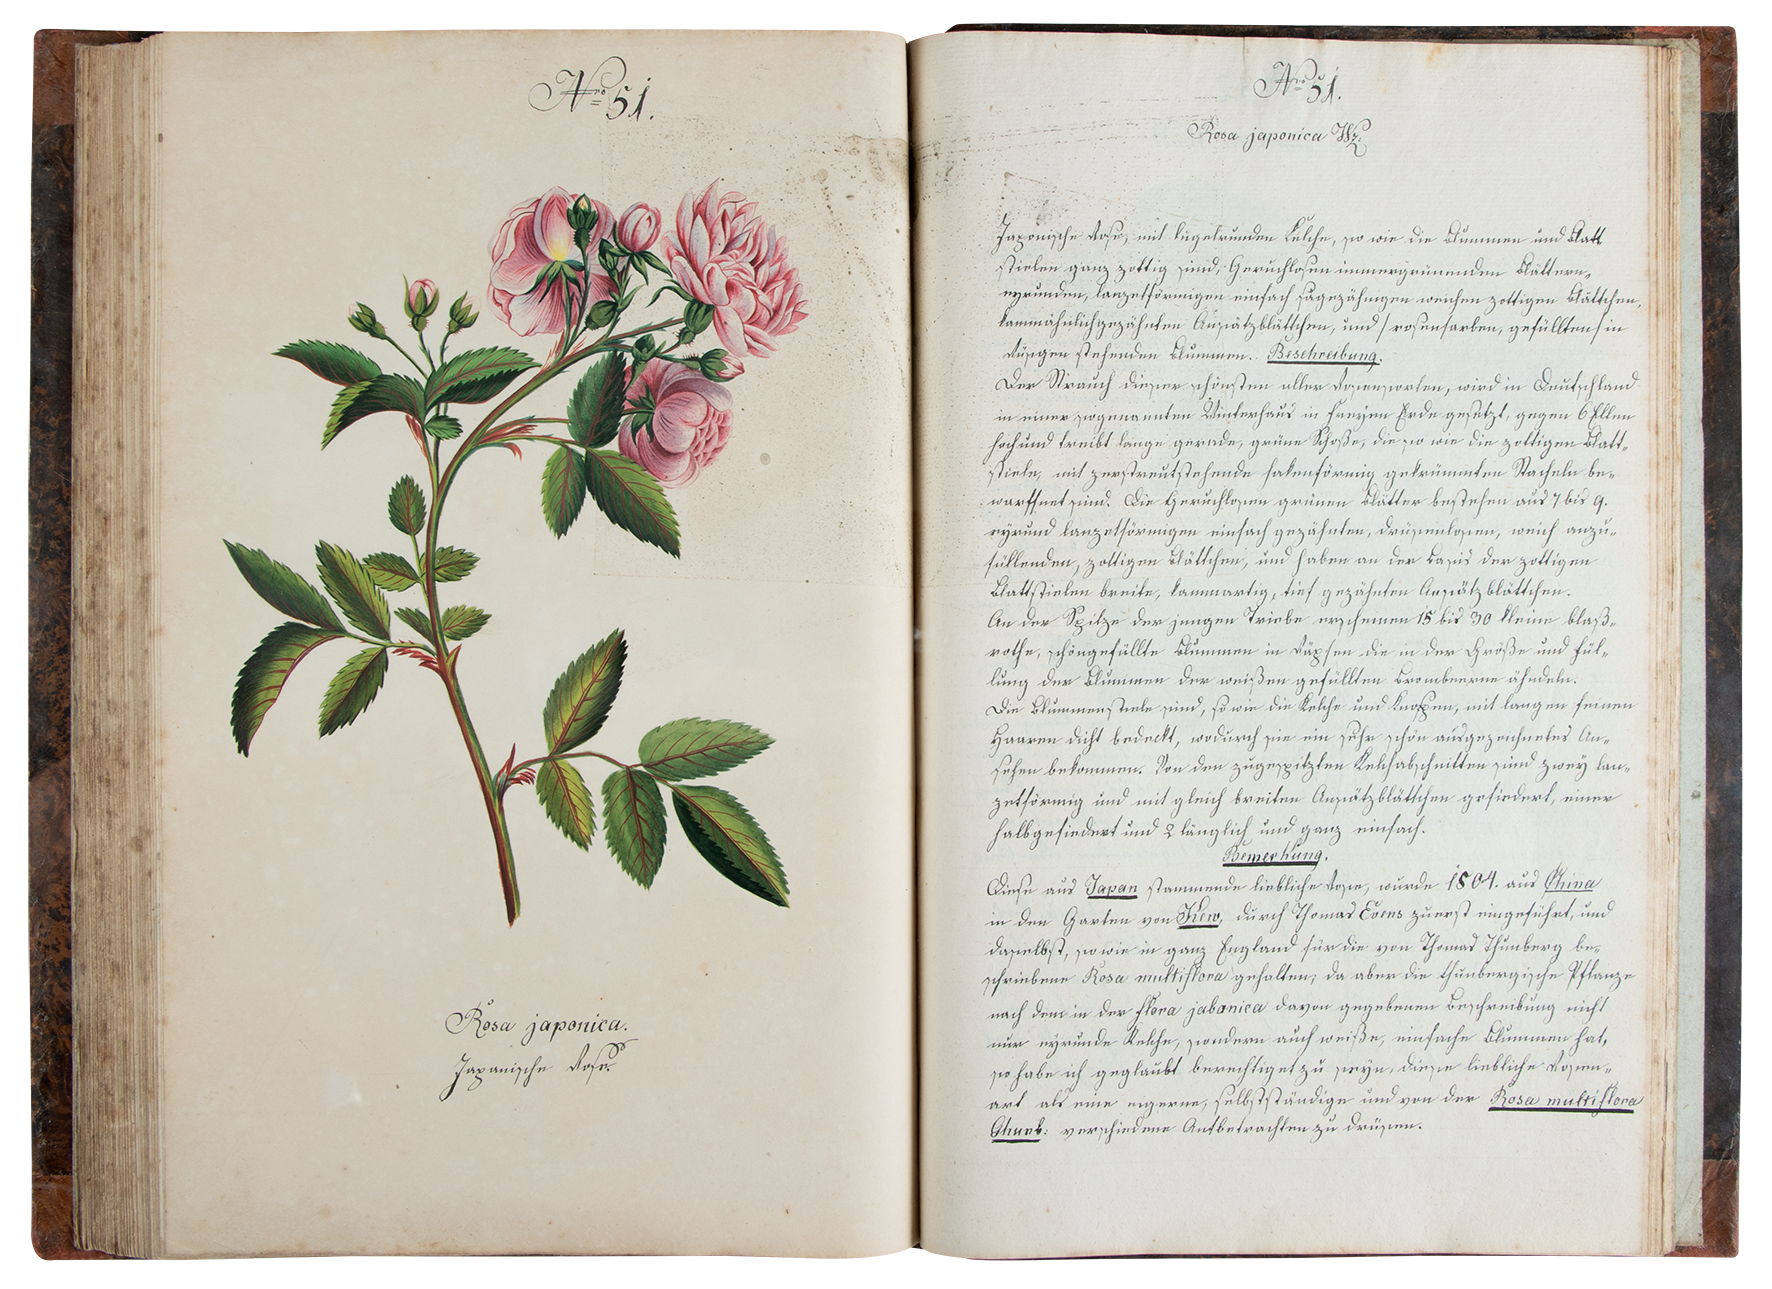 Nro 51.
Rosa japonica.
Japanische Rose.
Nro 51.
Rosa japonica Wz.
Japonische Rose, mit kugelrunden Kelche, so wie die Blummen und Blatt
stielen ganz zottig sind; Geruchlosen immergrünenden Blättern,
eyrunden, lanzetförmigen einfach sägezähnigen weichen zottigen Blättchen,
kammähnlichgezähnten Ansätzblättchen, und / rosenfarben, gefüllten / in
stehenden Blummen. Beschreibung.
Der Strauch dieser schönsten aller Rosensorten, wird in Deutschland
in einer sogenannten Winterhaus in freyen Erde gesetzt, gegen 6 Ellen
hoch und treibt lange gerade, grüne Schoße, die so wie die zottigen Blatt-
stiele, mit zerstreutstehende hakenförmig gekrümmten Stacheln be-
waffnet sind. Die Geruchlosen grünen Blätter bestehen aus 7 bis 9.
eyrund lanzetförmigen einfach gezähnten, drüsenlosen, weich anzu-
füllenden, zottigen Blättchen, und haben an der Basis der zottigen
Blattstielen breite, kammartig, tief gezähnten Ansätzblättchen.
An der Spitze der jungen Triebe erscheinen 15 bis 30 kleine blaß-
rothe, schöngefüllte Blummen in die in der Größe und Fül-
lung der Blummen der weißen gefüllten Brombeerne ähndeln.
Die Blummenstiele sind, so wie die Kelche und Knospen, mit langen feinen
Haaren dicht bedeckt, wodurch sie ein sehr schön ausgezeichnetes An-
sehen bekommen. Von den zugespitzten Kelchabschnitten sind zwey lan-
zetförmig und mit gleich breiten Ansätzblättchen gefiedert, einer
halbgefiedert und 2 länglich und ganz einfach.
Bemerkung.
Diese aus Japan stammende liebliche Rose, wurde 1804. aus China
in den Garten von Kew, durch Thomas Evens zuerst eingeführt, und
daselbst, so wie in ganz England für die von Thomas Thunberg be-
schriebene Rosa multiflora gehalten; da aber die thunbergische Pflanze
nach dem in der flora jabonica davon gegebenen Beschreibung nicht
nur eyrunde Kelche, sondern auch weiße, einfache Blummen hat,
so habe ich geglaubt berechtiget zu seyn, diese liebliche Rosen-
art als eine eigerne, selbstständige und von der Rosa multiflora
Thunb: verschiedene Art betrachten zu drüsen.